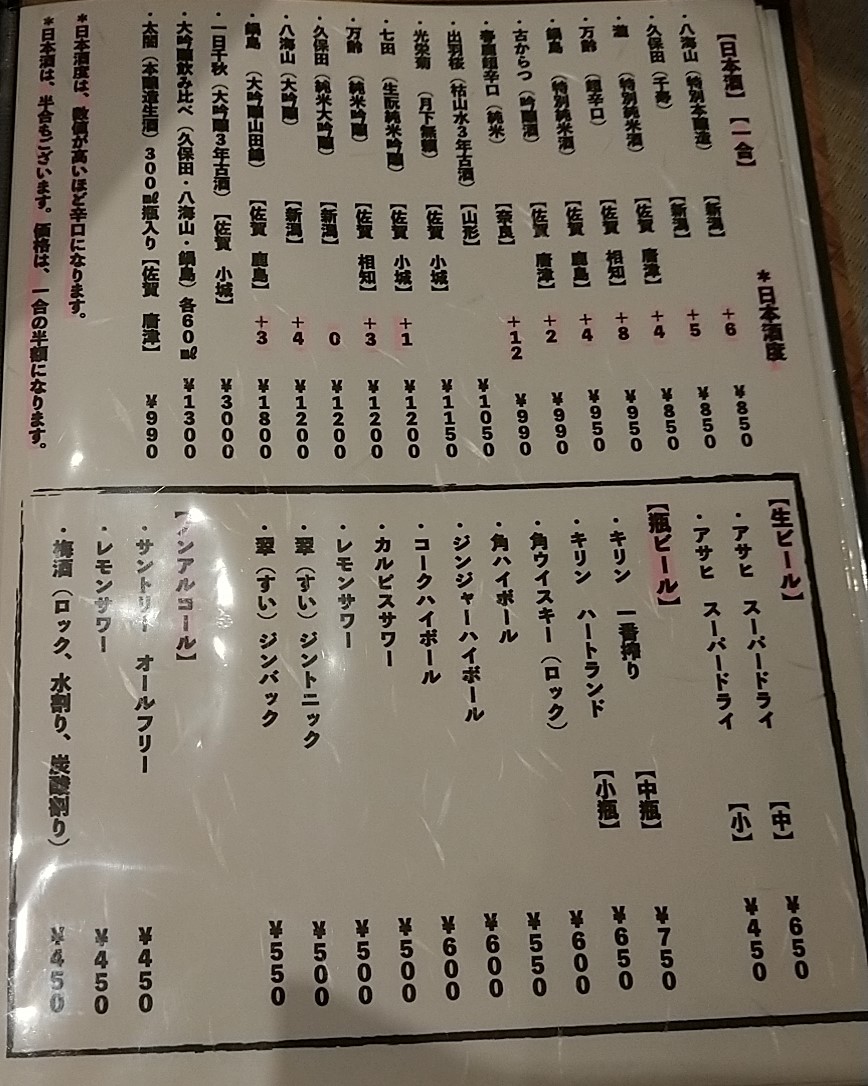 【日本酒】【一合】 *日本酒度
・八海山（特別本醸造）【新潟】 +6 ¥850
・久保田（千寿）【新潟】 +5 ¥850
・瀧（特別純米酒）【佐賀 唐津】 +4 ¥850
・万齢（超辛口）【佐賀 相知】 +8 ¥950
・鍋島（特別純米酒）【佐賀 鹿島】 +4 ¥950
・古からつ（吟醸酒）【佐賀 唐津】 +2 ¥990
・春鹿超辛口（純米）【奈良】 +12 ¥990
・出羽桜（枯山水3年古酒）【山形】 ¥1050
・光栄菊（月下無頼）【佐賀 小城】 ¥1150
・七田（生酛純米吟醸）【佐賀 小城】 +1 ¥1200
・万齢（純米吟醸）【佐賀 相知】 +3 ¥1200
・久保田（純米大吟醸）【新潟】 0 ¥1200
・八海山（大吟醸）【新潟】 +4 ¥1200
・鍋島（大吟醸山田錦）【佐賀 鹿島】 +3 ¥1800
・一日千秋（大吟醸3年古酒）【佐賀 小城】 ¥3000
・大吟醸飲み比べ（久保田・八海山・鍋島）各60㎖ ¥1300
・太閤（本醸造生酒）300㎖瓶入り【佐賀 唐津】 ¥990
*日本酒度は、数値が高いほど辛口になります。
*日本酒は、半合もございます。価格は、一合の半額になります。
【生ビール】
・アサヒ スーパードライ 【中】 ¥650
・アサヒ スーパードライ 【小】 ¥450
【瓶ビール】
・キリン 一番搾り 【中瓶】 ¥750
・キリン ハートランド 【小瓶】 ¥650
・角ウイスキー（ロック） ¥600
・角ハイボール ¥550
・ジンジャーハイボール ¥600
・コークハイボール ¥600
・カルピスサワー ¥500
・レモンサワー ¥500
・翠（すい）ジントニック ¥500
・翠（すい）ジンバック ¥550
【ノンアルコール】
・サントリー オールフリー ¥450
・レモンサワー ¥450
・梅酒（ロック、水割り、炭酸割り） ¥450